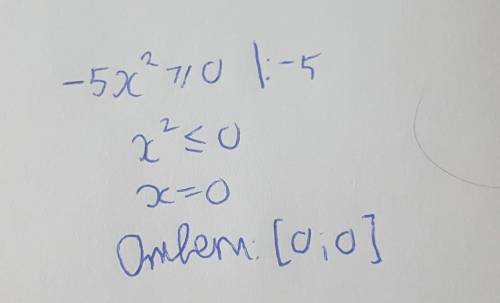 -5x² ⩾ 0 |:-5
x² ≤ 0
x=0
Ответ: [0;0]